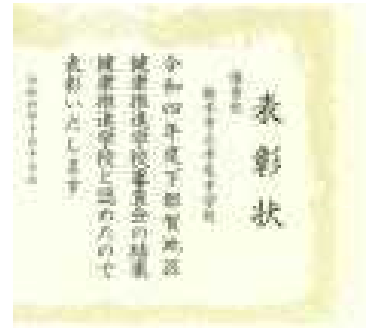 表彰状
優良校
令和四年度下都賀地区
健康推進学校審査会の結果
健康推進学校と認めたので
表彰いたします